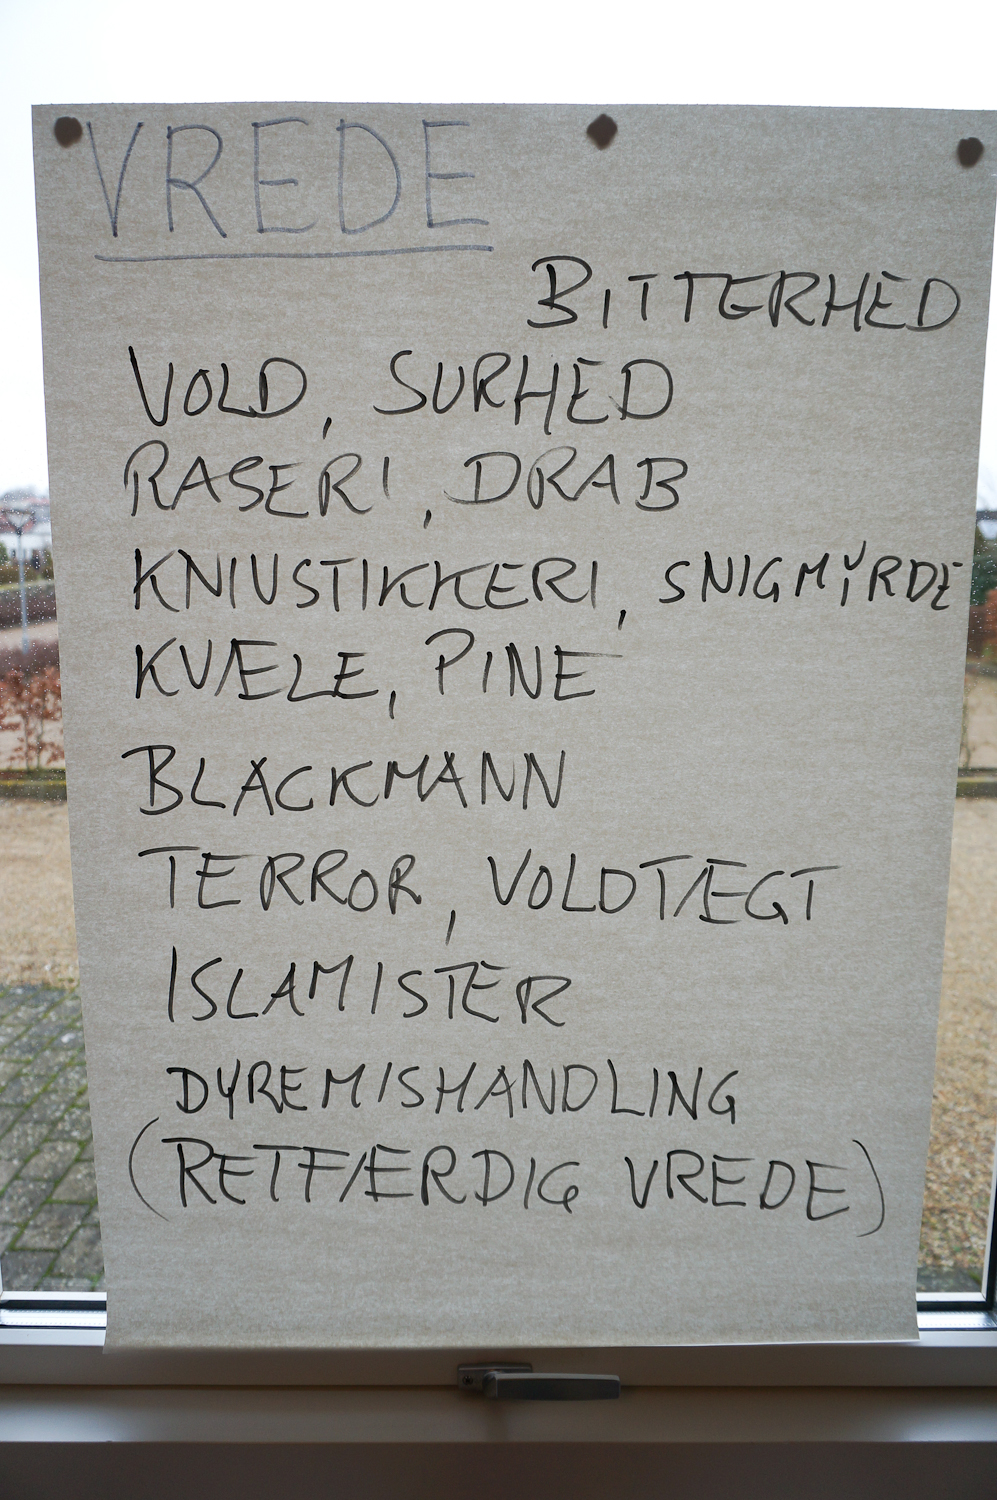 VREDE
BITTERHED
VOLD, SURHED
RASERI, DRAB
KNIVSTIKKERI, SNIGMYRDE
KVÆLE, PINE
BLACKMANN
TERROR, VOLDTÆGT
ISLAMISTER
DYREMISHANDLING
(RETFÆRDIG VREDE)